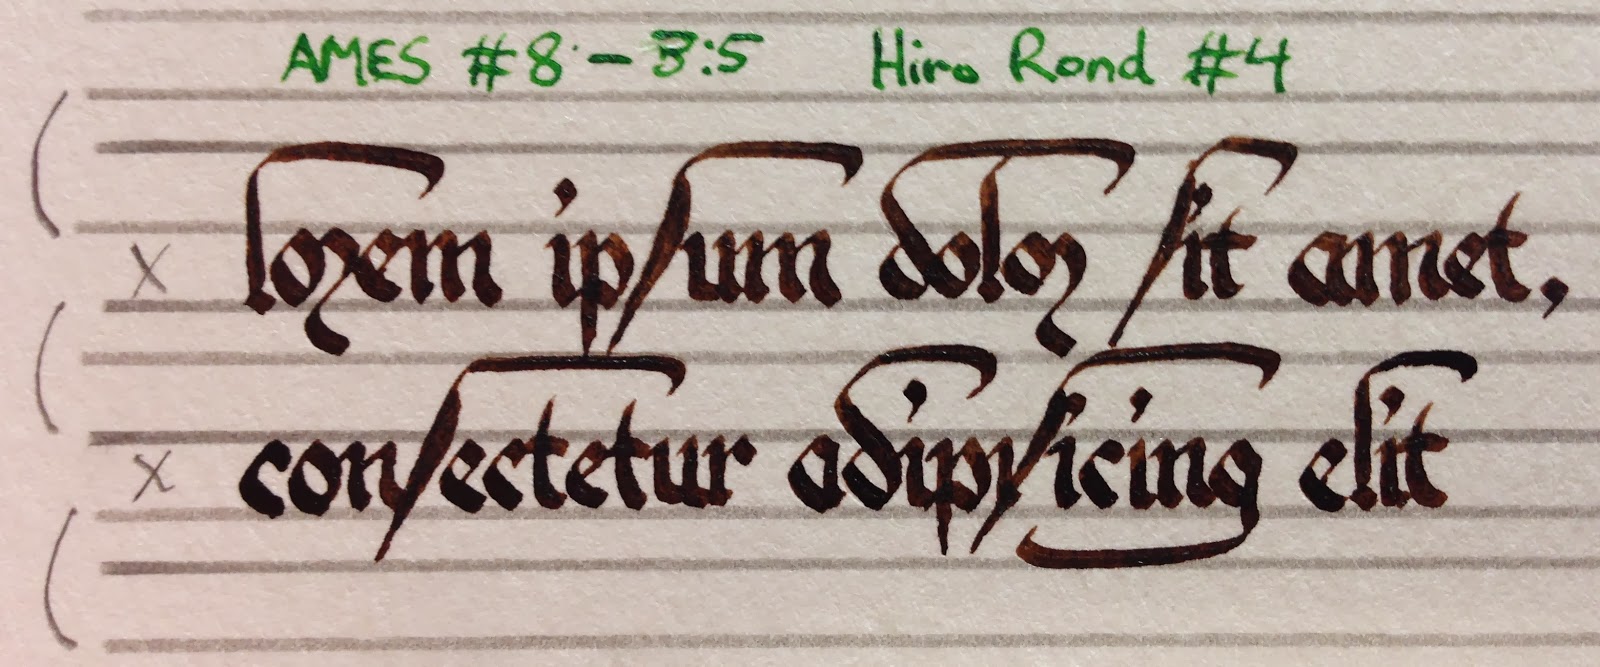 AMES #8 - 3:5 Hiro Rond #4
x lorem ipſum dolor ſit amet,
x conſectetur adipiſicing elit